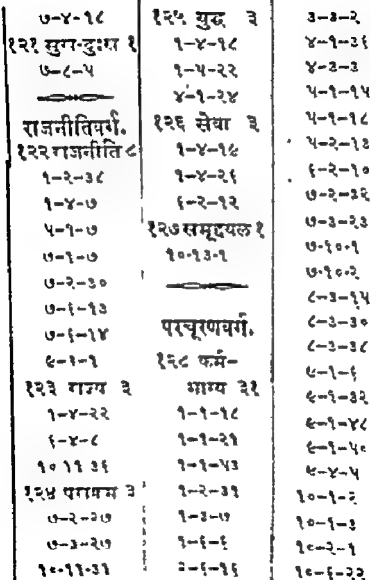 ७-४-१८
१२१ सुख-दुःख १
७-८-५
राजनीतिवर्ग.
१२२ राजनीति ८
१-२-३८
१-४-७
५-१-७
७-१-७
७-२-३०
७-६-१३
७-६-१४
९-१-१
१२३ राज्य ३
१-४-२२
६-४-८
१०-११-३६
१२४ पराक्रम ३
७-२-२७
७-३-२७
१०-११-३१
१२५ युद्ध ३
१-४-१८
१-५-२२
४-१-२४
१२६ सेवा ३
१-४-१९
१-४-२६
६-२-१२
१२७ समूहबल १
१०-१३-१
परचूरणवर्ग.
१२८ कर्म-
भाग्य ३१
१-१-१८
१-१-२१
१-१-५३
१-२-३१
१-३-७
१-६-६
२-६-१६
३-३-२
४-१-३६
४-३-३
५-१-१५
५-१-१८
५-२-१३
६-२-१०
७-२-३२
७-३-२३
७-१०-१
७-१०-२
८-३-१५
८-३-३०
८-३-३८
९-१-६
९-१-३२
९-१-४८
९-१-५०
९-४-५
१०-१-२
१०-१-३
१०-२-१
१०-६-२२